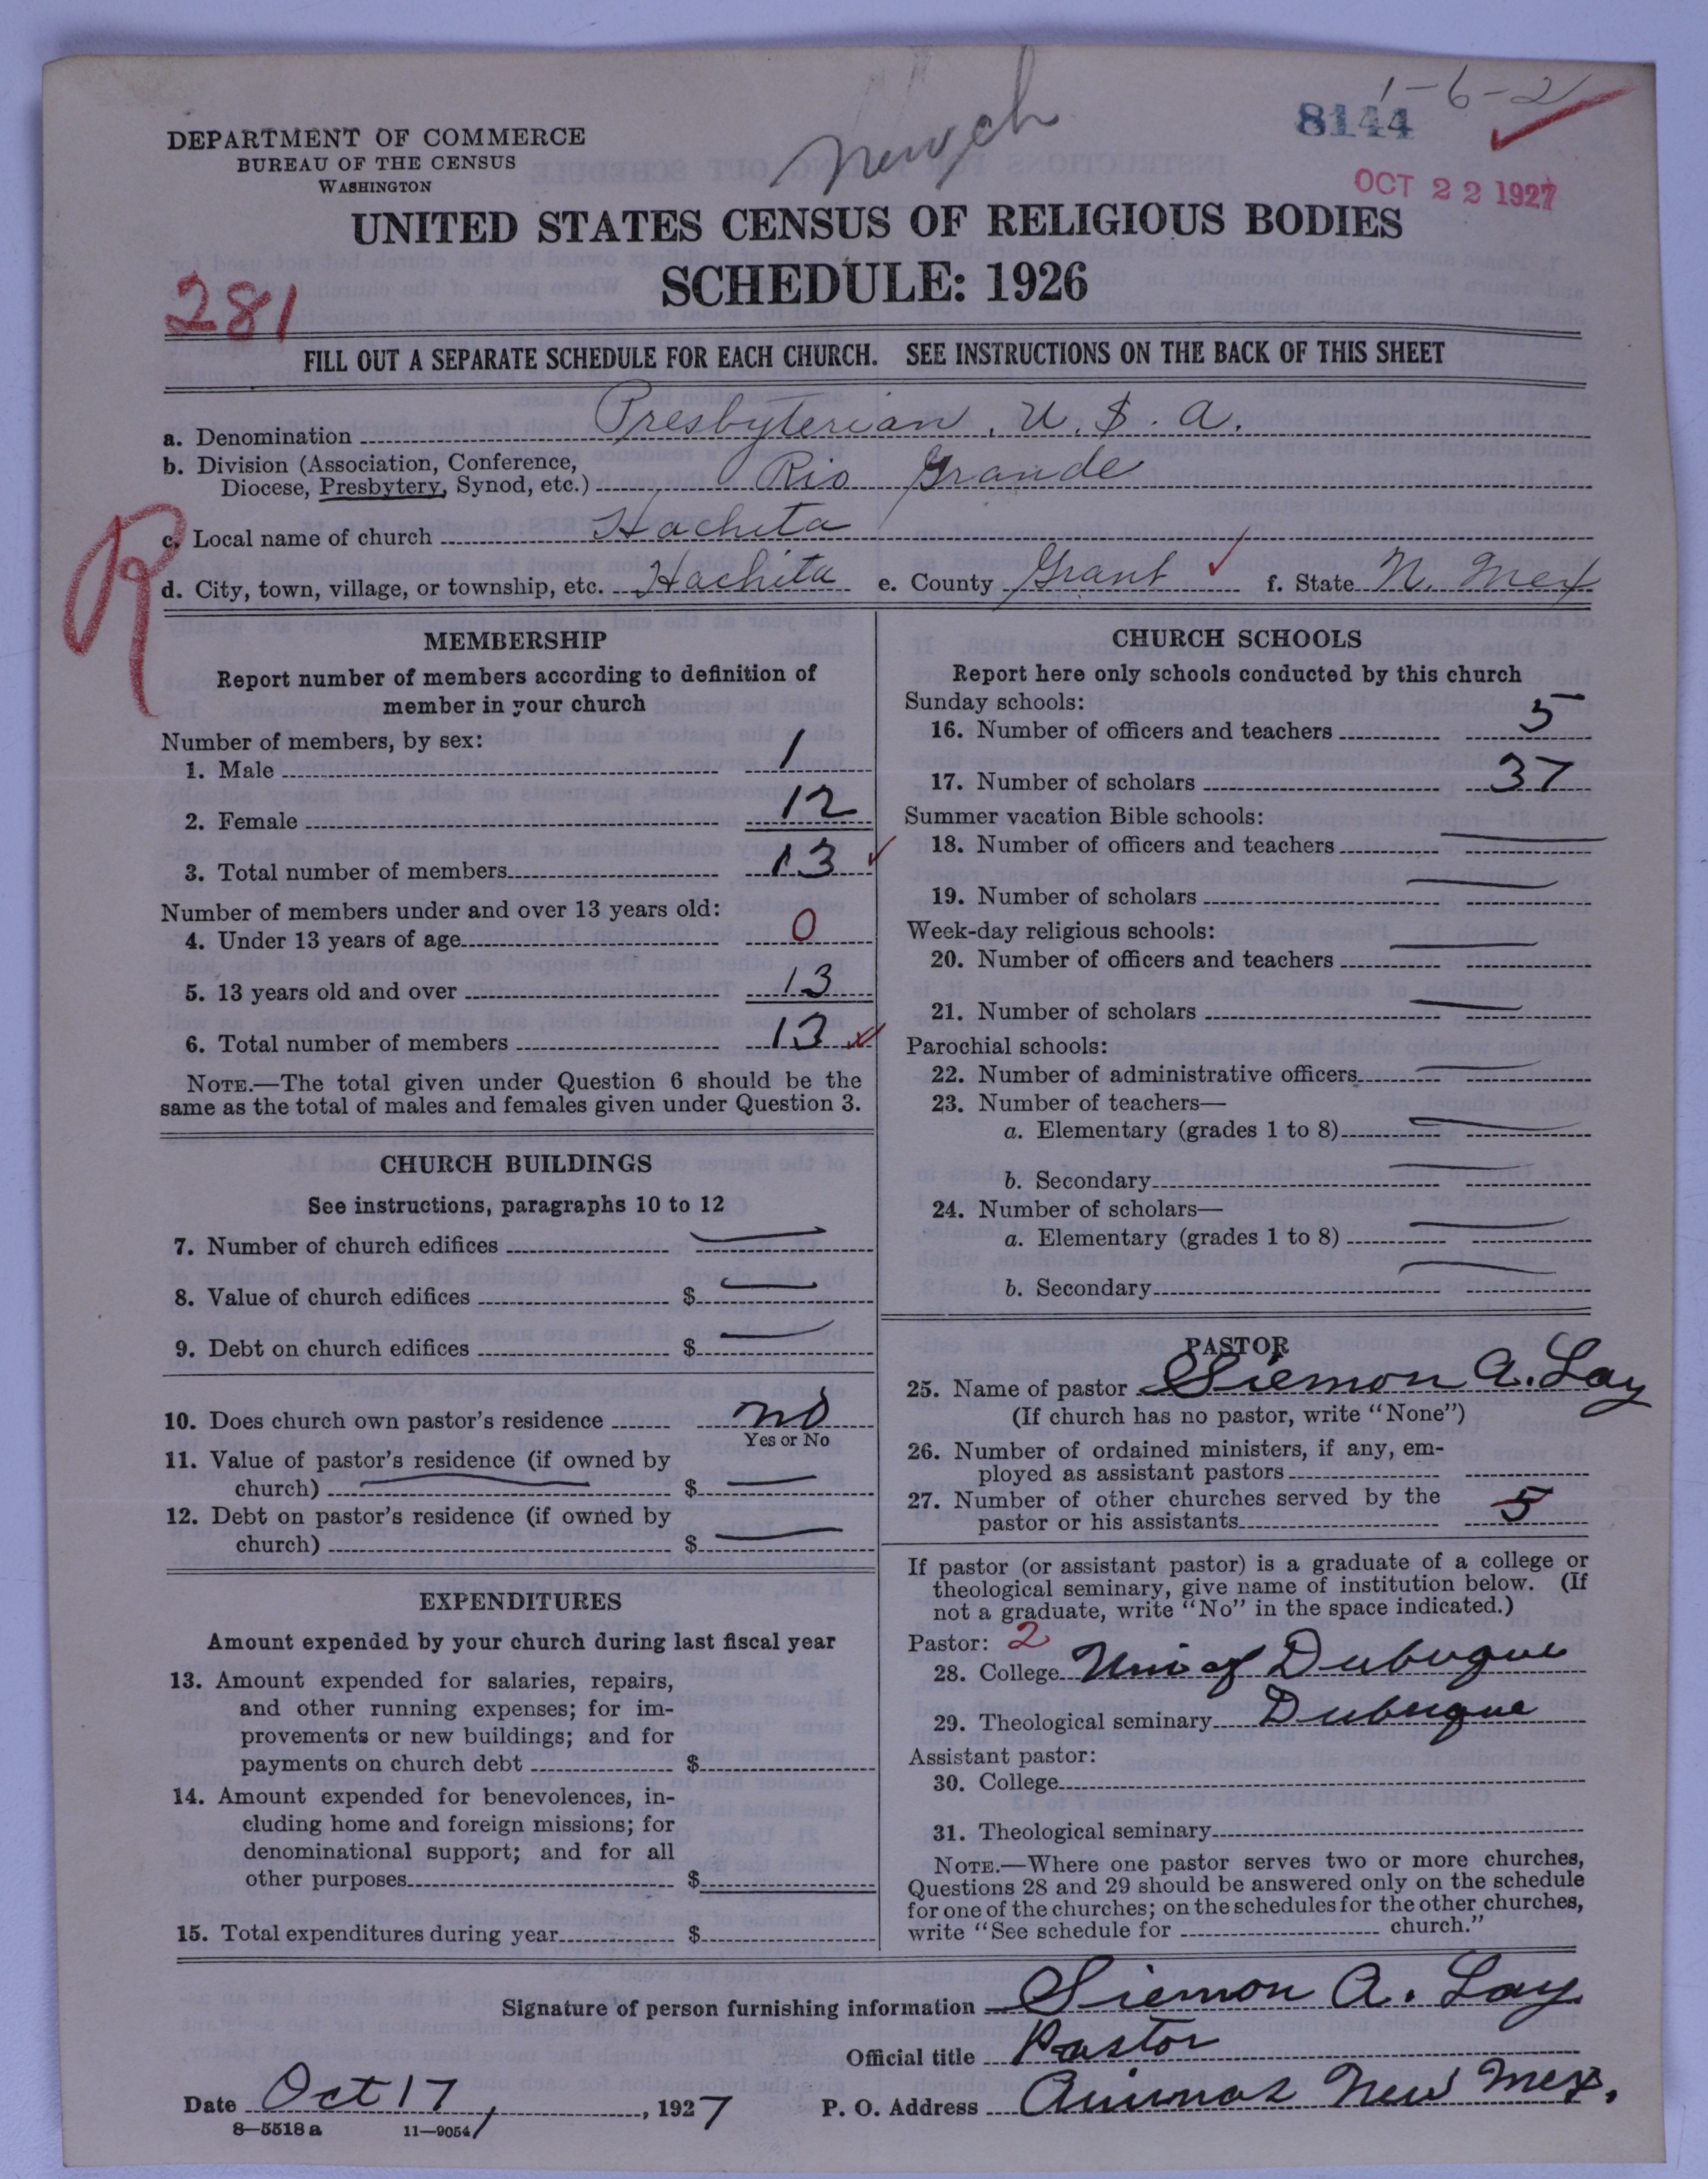 1-6-2
8144
DEPARTMENT OF COMMERCE
BUREAU OF THE CENSUS
WASHINGTON
OCT 22 1927
UNITED STATES CENSUS OF RELIGIOUS BODIES
SCHEDULE: 1926
281
FILL OUT A SEPARATE SCHEDULE FOR EACH CHURCH. SEE INSTRUCTIONS ON THE BACK OF THIS SHEET
a. Denomination Presbyterian, U.S.A.
b. Division (Association, Conference,
Diocese, Presbytery, Synod, etc.) Rio Grande
R
c. Local name of church Hachita
d. City, town, village, or township, etc. Hachita e. County Grant f. State N. Mex
MEMBERSHIP
Report number of members according to definition of
member in your church
Number of members, by sex:
1. Male 1
2. Female 12
3. Total number of members 13
Number of members under and over 13 years old:
4. Under 13 years of age 0
5. 13 years old and over 13
6. Total number of members 13
NOTE.—The total given under Question 6 should be the
same as the total of males and females given under Question 3.
CHURCH BUILDINGS
See instructions, paragraphs 10 to 12
7. Number of church edifices —
8. Value of church edifices $ —
9. Debt on church edifices $ —
10. Does church own pastor's residence no
Yes or No
11. Value of pastor's residence (if owned by
church) — $ —
12. Debt on pastor's residence (if owned by
church) $ —
EXPENDITURES
Amount expended by your church during last fiscal year
13. Amount expended for salaries, repairs,
and other running expenses; for im-
provements or new buildings; and for
payments on church debt $
14. Amount expended for benevolences, in-
cluding home and foreign missions; for
denominational support; and for all
other purposes $
15. Total expenditures during year $
CHURCH SCHOOLS
Report here only schools conducted by this church
Sunday schools:
16. Number of officers and teachers 5
17. Number of scholars 37
Summer vacation Bible schools:
18. Number of officers and teachers —
19. Number of scholars —
Week-day religious schools:
20. Number of officers and teachers —
21. Number of scholars —
Parochial schools:
22. Number of administrative officers —
23. Number of teachers—
a. Elementary (grades 1 to 8) —
b. Secondary —
24. Number of scholars—
a. Elementary (grades 1 to 8) —
b. Secondary —
PASTOR
25. Name of pastor Siemon A. Lay
(If church has no pastor, write "None")
26. Number of ordained ministers, if any, em-
ployed as assistant pastors
27. Number of other churches served by the
pastor or his assistants 5
If pastor (or assistant pastor) is a graduate of a college or
theological seminary, give name of institution below. (If
not a graduate, write "No" in the space indicated.)
Pastor: 2
28. College Uni of Dubuque
29. Theological seminary Dubuque
Assistant pastor:
30. College
31. Theological seminary
NOTE.—Where one pastor serves two or more churches,
Questions 28 and 29 should be answered only on the schedule
for one of the churches; on the schedules for the other churches,
write "See schedule for church."
Signature of person furnishing information Siemon A. Lay
Official title Pastor
Date Oct 17, 1927 P. O. Address Animas New Mex.
8—5518a 11—9054